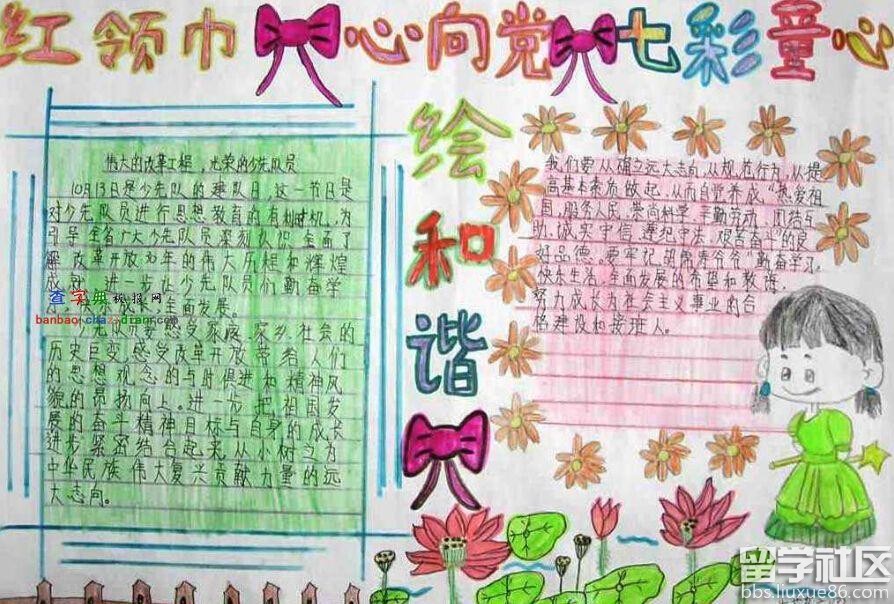 红领巾心向党七彩童心
绘和谐
伟大的改革工程,光荣的少先队员
10月13日是少先队的建队日,这一节日是
对少先队员进行思想教育的有利时机,为
引导全省广大少先队员深刻认识、全面了
解改革开放30年的伟大历程和辉煌
成就,进一步让少先队员们勤奋学
快乐成长、全面发展。
要感受家庭、家乡、社会的
历史巨变,感受改革开放带给人们
的思想观念的与时俱进和精神风
貌的昂扬向上。进一步把祖国发
展的奋斗精神目标与自身的成长
进步紧密结合起来,从小树立为
中华民族伟大复兴贡献力量的远
大志向。
我们要从确立远大志向、从规范行为、从提
高基本素质做起,从而自觉养成“热爱祖
国、服务人民、崇尚科学、辛勤劳动、团结互
助、诚实守信、遵纪守法、艰苦奋斗”的良
好品德。要牢记胡锦涛爷爷“勤奋学习、
快乐生活、全面发展的希望和教诲,
努力成长为社会主义事业的合
格建设和接班人。
查字典 板报网
banbao.chazidian.com
留学社区
bbs.liuxue86.com